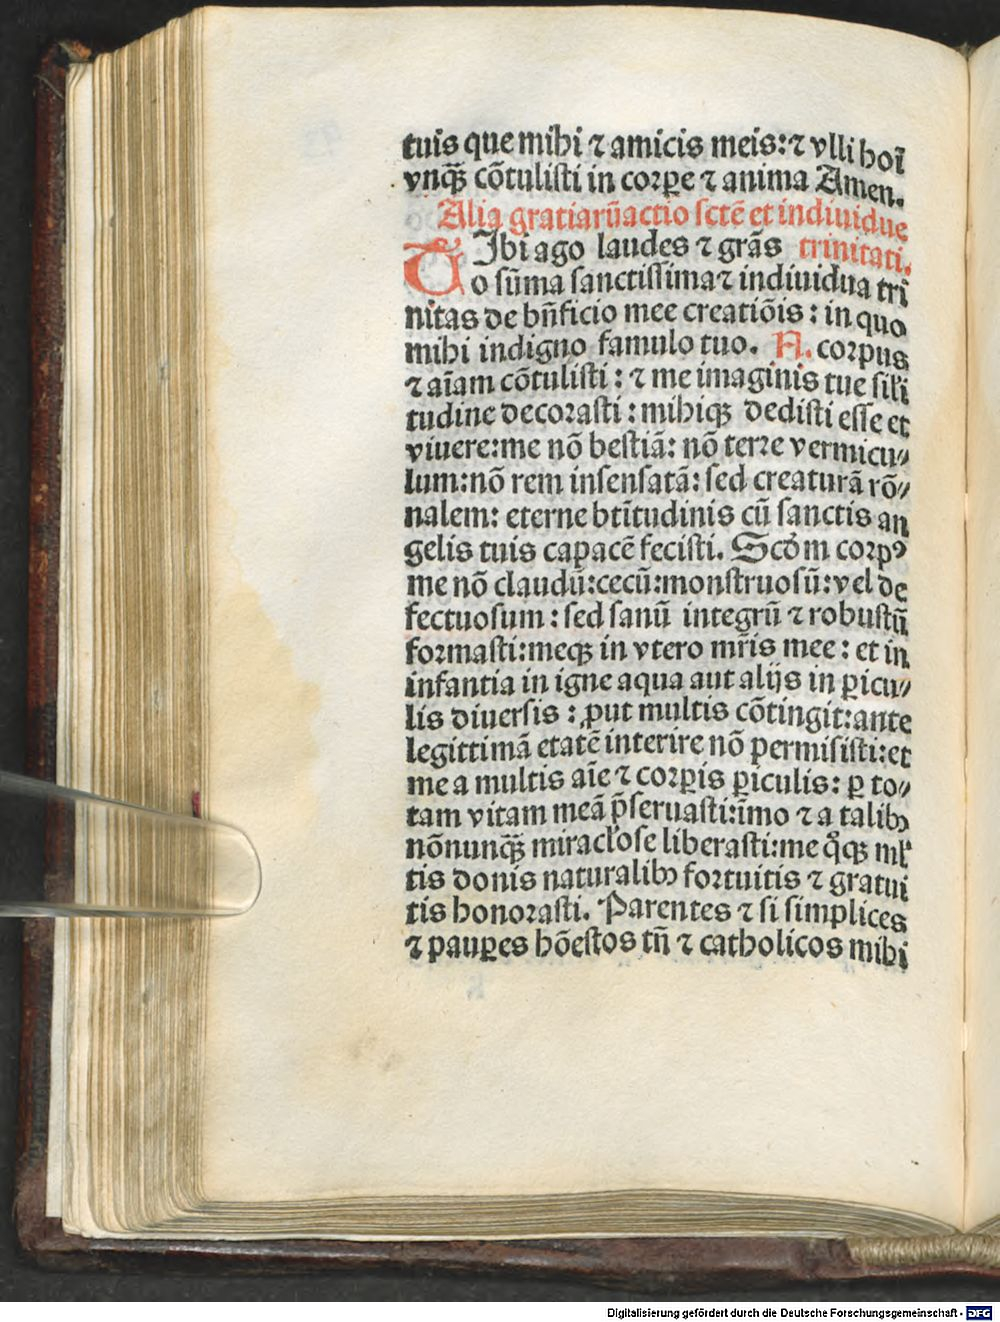 tuis que mihi ⁊ amicis meis: ⁊ vlli hoī
vnqꝫ̄ cōtulisti in corꝑe ⁊ anima Amen.
Alia gratiarūactio sctē et indiuidue
TJbi ago laudes ⁊ grās trinitati.
o sūma sanctissima ⁊ indiuidua tri
nitas de bn̄ficio mee creatiōis: in quo
mihi indigno famulo tuo. N. corpus
⁊ aīam cōtulisti: ⁊ me imaginis tue sili
tudine decorasti: mihiqꝫ dedisti esse et
viuere: me nō bestiā: nō terre vermicu⸗
lum: nō rem insensatā: sed creaturā rō⸗
nalem: eterne btītudinis cū sanctis an
gelis tuis capacē fecisti. Scd̓m corpꝰ
me nō claudū: cecū: monstruosū: vel de
fectuosum: sed sanū integrū ⁊ robustū
formasti: meqꝫ in vtero mr̄is mee: et in
infantia in igne aqua aut alijs in ꝑicu⸗
lis diuersis: ꝓut multis cōtingit: ante
legittimā etatē interire nō permisisti: et
me a multis aīe ⁊ corꝑis ꝑiculis: ꝑ to⸗
tam vitam meā p̄seruasti: īmo ⁊ a talibꝫ
nōnunqꝫ̄ miraclose liberasti: me qͦqꝫ ml̓
tis donis naturalibꝫ fortuitis ⁊ gratui
tis honorasti. Parentes ⁊ si simplices
⁊ pauꝑes hōestos tn̄ ⁊ catholicos mihi
Digitalisierung gefördert durch die Deutsche Forschungsgemeinschaft - DFG